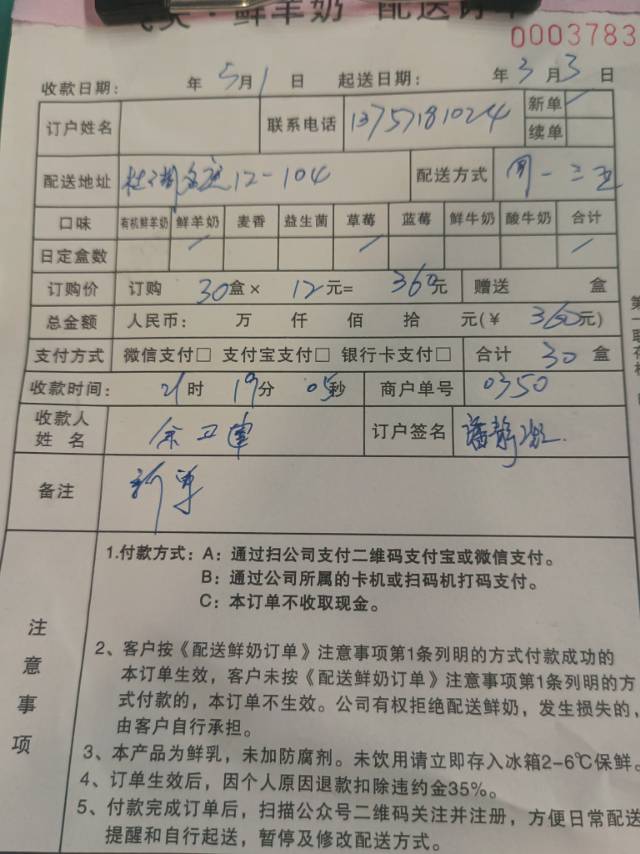 ·鲜羊奶 配送订单
0003783
收款日期： 年 5月 1 日 起送日期： 年 3 月 3 日
订户姓名 联系电话 13757181024 新单 /
续单
配送地址 12-104 配送方式 周一三五
口味 有机鲜羊奶 鲜羊奶 麦香 益生菌 草莓 蓝莓 鲜牛奶 酸牛奶 合计
日定盒数 / / /
订购价 订购 30 盒× 12 元= 360 元 赠送 盒
总金额 人民币： 万 仟 佰 拾 元(￥ 360元)
支付方式 微信支付□ 支付宝支付□ 银行卡支付□ 合计 30 盒
收款时间： 21 时 19 分 05 秒 商户单号 0350
收款人
姓 名 余卫建 订户签名 潘静
备注 新单
注意事项
1.付款方式：A：通过扫公司支付二维码支付宝或微信支付。
B：通过公司所属的卡机或扫码机打码支付。
C：本订单不收取现金。
2、客户按《配送鲜奶订单》注意事项第1条列明的方式付款成功的
本订单生效，客户未按《配送鲜奶订单》注意事项第1条列明的方
式付款的，本订单不生效。公司有权拒绝配送鲜奶，发生损失的，
由客户自行承担。
3、本产品为鲜乳，未加防腐剂。未饮用请立即存入冰箱2-6℃保鲜。
4、订单生效后，因个人原因退款扣除违约金35%。
5、付款完成订单后，扫描公众号二维码关注并注册，方便日常配送
提醒和自行起送，暂停及修改配送方式。
第一联存根